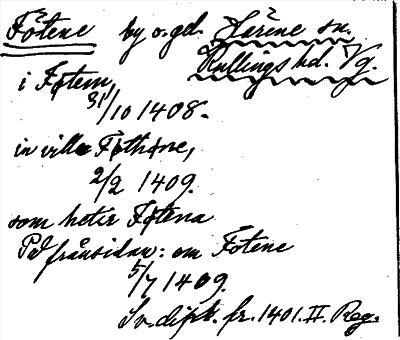 Fötene by o. gd. Särene sn.
Kullings hd. Vg.
i Føtem,
31/10 1408.
in villa Føthøne,
2/2 1409.
som heter Føtena
På frånsidan: om Føtene
5/7 1409.
Sv. dipl. fr. 1401. II. Reg.